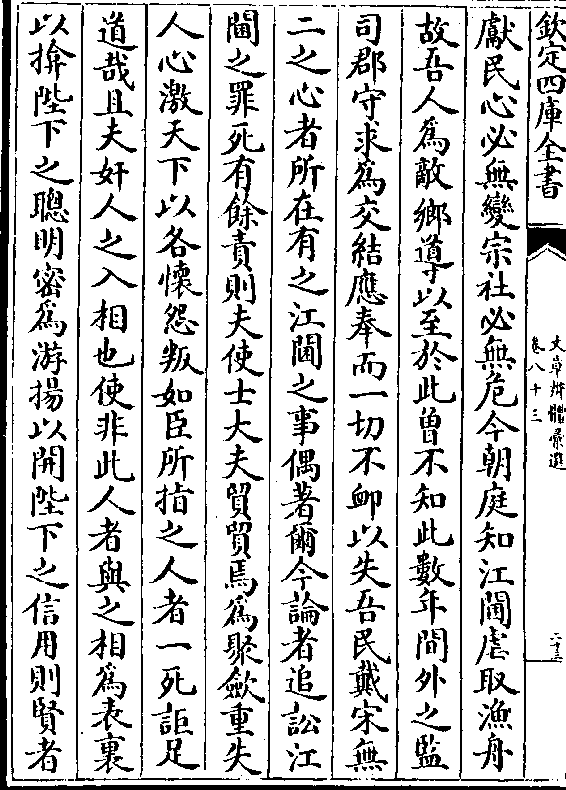 欽定四庫全書
文章辨體彙選
卷八十三
二十三
獻民心必無變宗社必無危今朝庭知江閫虐取漁舟
故吾人為敵鄉導以至於此曾不知此數年間外之監
司郡守求為交結應奉而一切不卹以失吾民戴宋無
二之心者所在有之江閫之事偶著爾今論者追訟江
閫之罪死有餘責則夫使士大夫貿貿焉為聚斂重失
人心激天下以各懷怨叛如臣所指之人者一死詎足
道哉且夫奸人之入相也使非此人者與之相為表裏
以揜陛下之聰明密為游揚以開陛下之信用則賢者